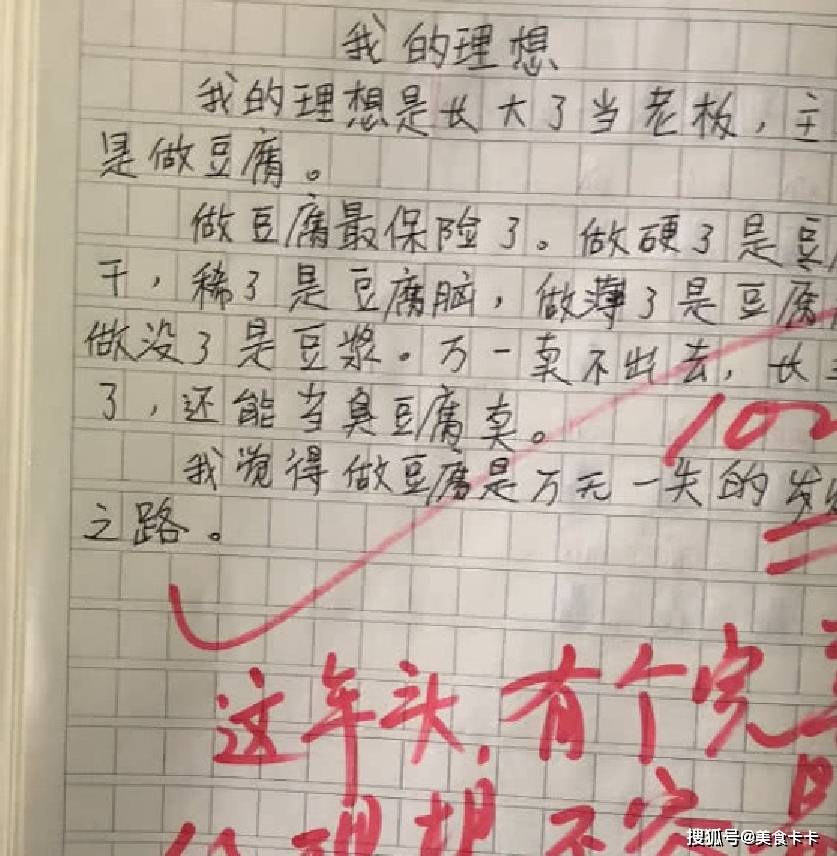 我的理想
我的理想是长大了当老板，主
是做豆腐。
做豆腐最保险了。做硬了是豆
干，稀了是豆腐脑，做薄了是豆腐
做没了是豆浆。万一卖不出去，长
了，还能当臭豆腐卖。
我觉得做豆腐是万无一失的发
之路。
100
这年头，有个完
理想不容
搜狐号@美食卡卡